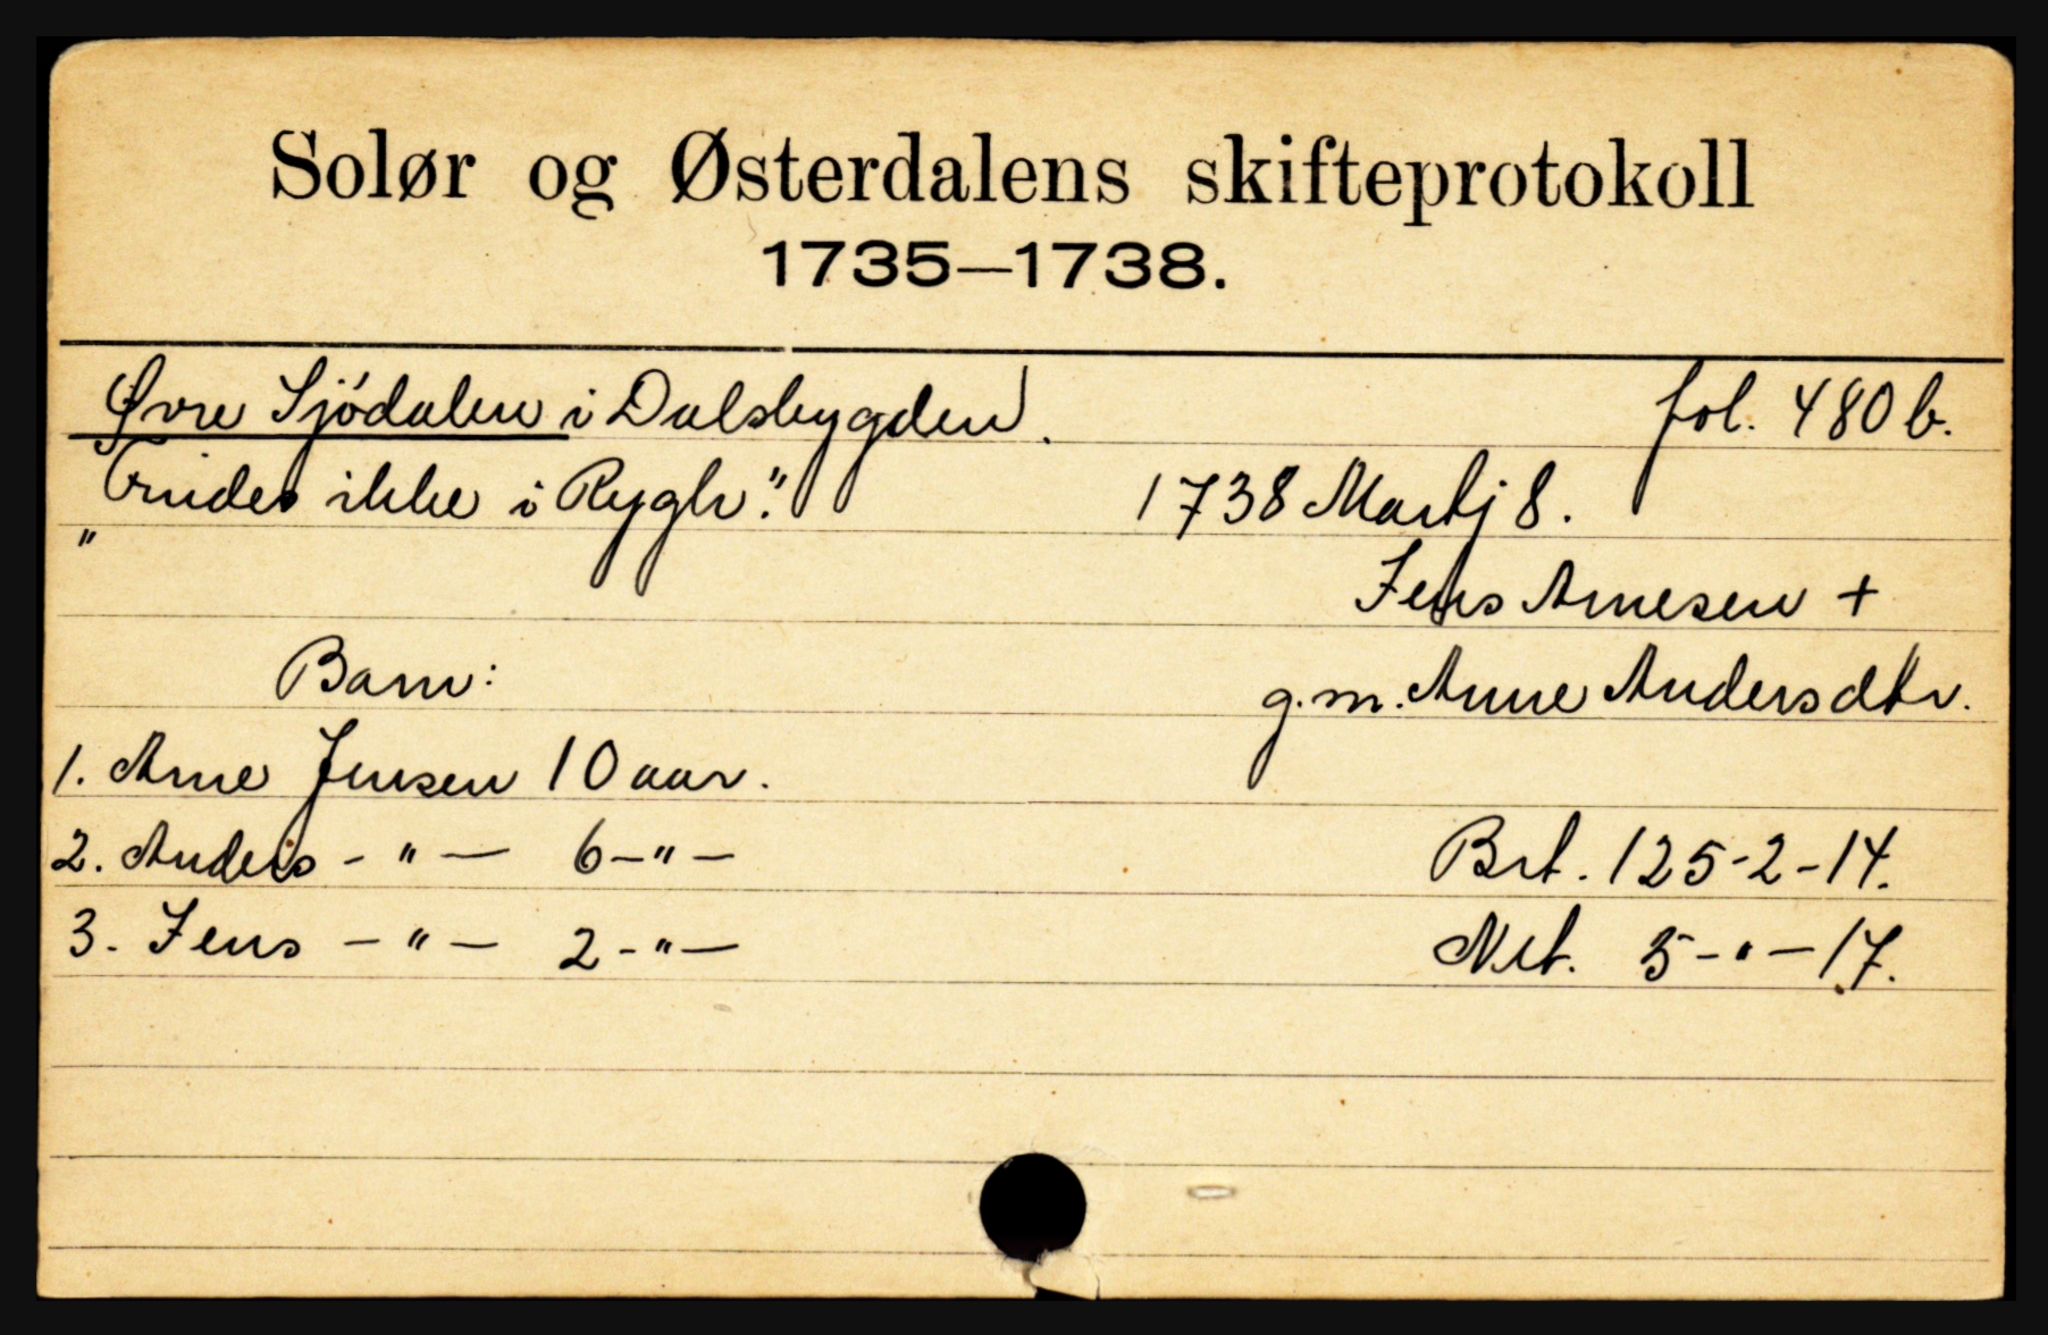 Solør og Østerdalens skifteprotokoll
1735—1738.
Øvre Sjódalen i Dalsbygden. fol. 480 b.
"Findes ikke i Rygh." 1738 Martj 8.
Jens Arnesen +
Barn: g.m. Anne Andersdtr.
1. Arne Jensen 10 aar.
2. Anders - " — 6 - " — Brt. 125-2-14.
3. Jens - " — 2 - " — Net. 5 - " - 17.